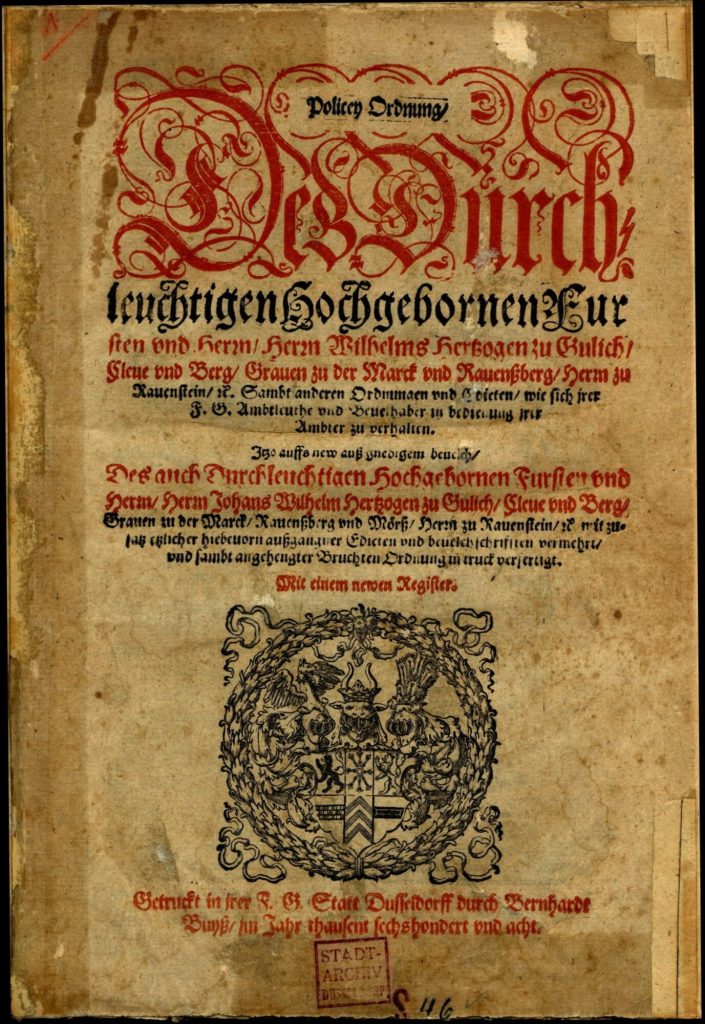 Policey Ordnung/
Deß Durch-
leuchtigen Hochgebornen Fur
sten vnd Herrn/ Herrn Wilhelms Hertzogen zu Gulich/
Cleue vnd Berg/ Grauen zu der Marck vnd Rauenßberg/ Herrn zu
Rauenstein/ ꝛc. Sambt anderen Ordnungen vnd Edicten/ wie sich jrer
F. G. Ambtleuthe vnd Beuelhaber in bedienung jrer
Ambter zu verhalten.
Itzo auffs new auß gnedigem beuelch/
Des auch Durchleuchtigen Hochgebornen Fursten vnd
Herrn/ Herrn Johans Wilhelm Hertzogen zu Gulich/ Cleue vnd Berg/
Grauen zu der Marck/ Rauenßberg vnd Mörß/ Herrn zu Rauenstein/ ꝛc mit zu-
satz etzlicher hiebeuorn außgangner Edicten vnd beuelchschrifften vermehrt/
vnd sambt angehengter Bruchten Ordnung in truck verfertigt.
Mit einem newen Register.
Getruckt in jrer F. G. Statt Dusseldorff durch Bernhardt
Buyß/ im Jahr thausent sechshondert vnd acht.
STADT-
ARCHIV
DÜSSELDORF
46